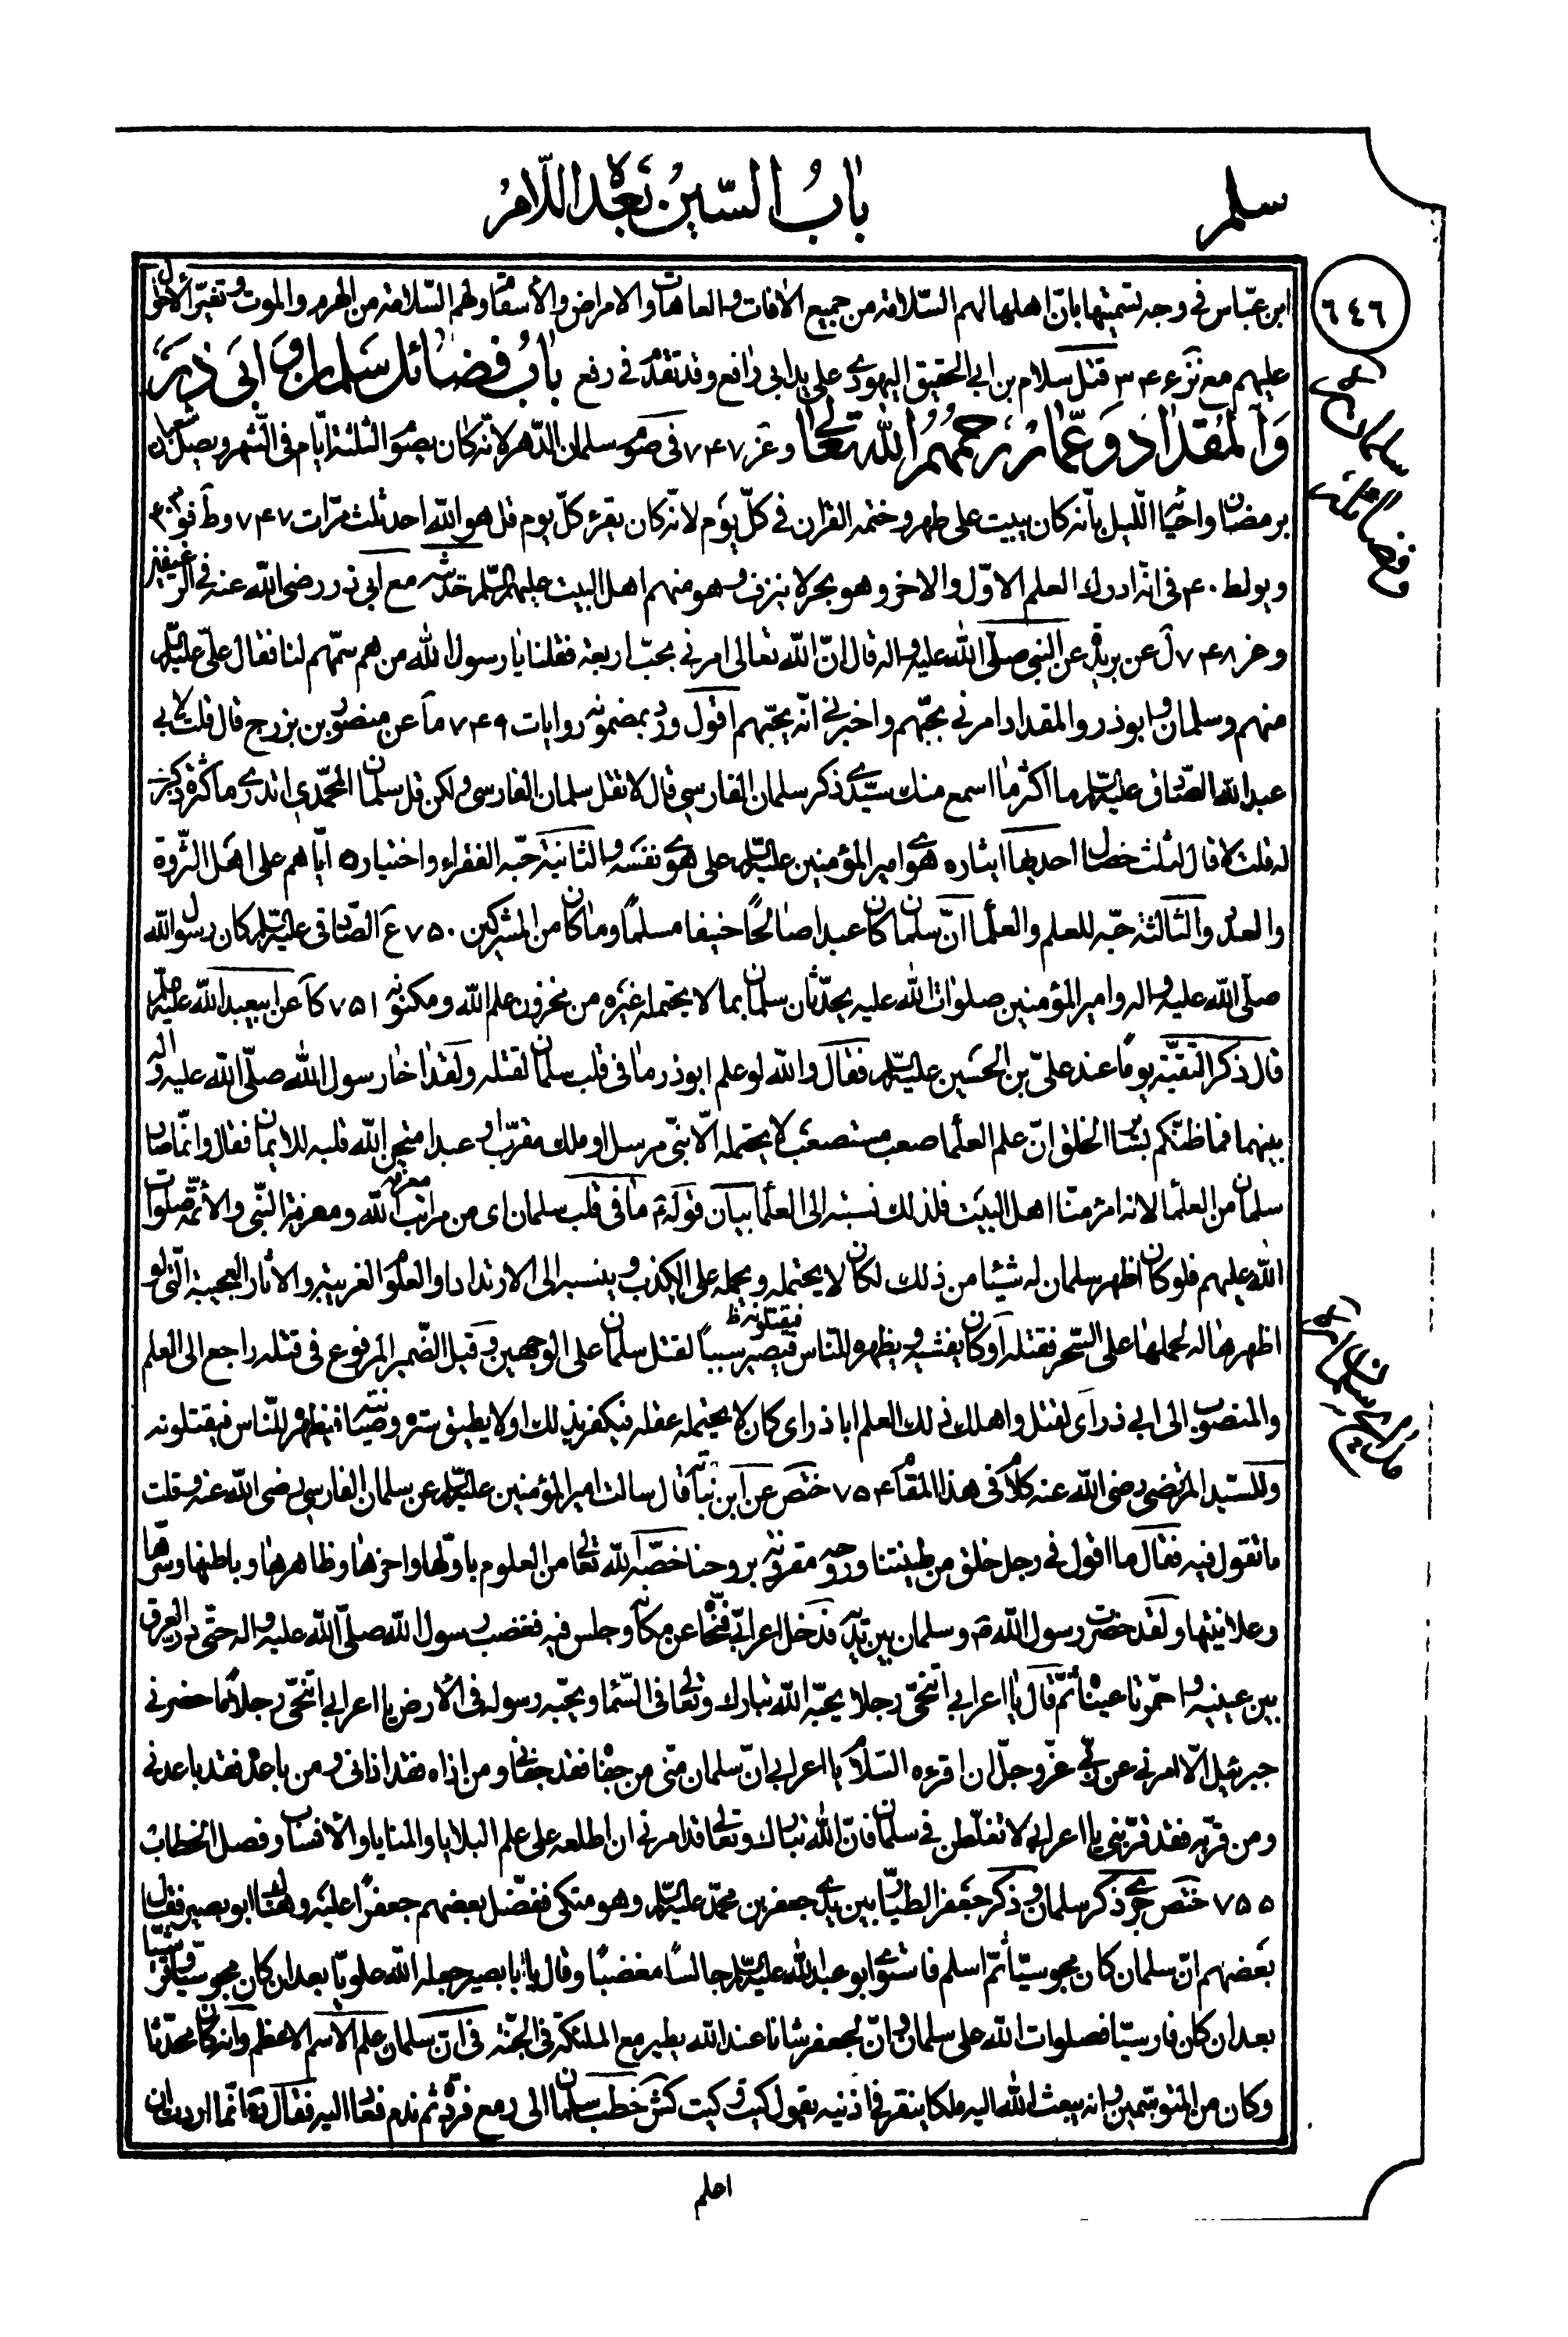 باب السّين بعده اللّام
سلم
٦٤٦
ابن عبّاس في وجه تسميتها بانّ اهلها لهم السّلامة من جميع الافات والعاهات والامراض والأسقام ولهم السّلامة من الهرم والموت وتغيّر الأحوال
عليهم مع نزع ٣٤٤ قتل سلام بن ابي الحقيق اليهودي على يد ابي رافع وقد تقدّم في رفع باب فضائل سلمان و ابي ذر
والمقداد وعمّار رحمهم الله تعالى وعز ٧٤٧ في صوم سلمان الدّهر لانّه كان يصوم الثلثة ايّام في الشّهر ويصل شعبان
برمضان واحياء اللّيل بأنّه كان يبيت على طهر وختمه القران في كلّ يوم لانّه كان يقرء كلّ يوم قل هو الله احد ثلث مرّات ٧٤٧
في انّه ادرك العلم الاوّل والاخر وهو بحر لا ينزف وهو منهم اهل البيت عليهم السّلم حديثه مع ابي ذر رضى الله عنه في الرغيفين
وخر ٧٤٨ ل عن بريدة عن النبي صلّى الله عليه واله قال انّ الله تعالى امرني بحبّ اربعة فقلنا يا رسول الله من هم سمّهم لنا فقال عليّ عليه السّلم
منهم وسلمان وابوذر والمقداد امرني بحبّهم واخبرني انّه يحبّهم اقول ورد بمضمونه روايات ٧٤٩ ما عن منصور بن بزرج قال قلت لابي
عبد الله الصّادق عليه السّلم ما اكثر ما اسمع منك سيّدي ذكر سلمان الفارسي قال لا تقل سلمان الفارسي ولكن قل سلمان المحمّدي اتدري ما كثرة ذكري
له قلت لا قال لثلث خصال احديها ايثاره هوى امير المؤمنين عليه السّلم على هوى نفسه والثانية حبّه الفقراء واختياره ايّاهم على اهل الثّروة
والعدد والثالثة حبّه للعلم والعلماء انّ سلمان كان عبدا صالحًا حنيفا مسلمًا وما كان من المشركين ٧٥٠ ع الصّادق عليه السّلم كان رسول الله
صلّى الله عليه واله وامير المؤمنين صلوات الله عليه يحدّثان سلمان بما لا يحتمله غيره من مخزون علم الله ومكنونه ٧٥١ كا عن ابيعبد الله عليه السّلم
قال ذكر التّقيّة يومًا عند عليّ بن الحسين عليه السّلم فقال والله لو علم ابوذر ما في قلب سلمان لقتله ولقد اخا رسول الله صلّى الله عليه واله
بينهما فما ظنّكم بسائر الخلق انّ علم العلماء صعب مستصعب لا يحتمله الّا نبيّ مرسل او ملك مقرّب او عبد امتحن الله قلبه للايمان فقال وانّما صار
سلمان من العلماء لانه امرؤ منّا اهل البيت فلذلك نسبته الى العلماء بيان قوله ع ما في قلب سلمان اى من مراتب معرفة الله ومعرفة النّبي والأئمّة صلوات
الله عليهم فلو كان اظهر سلمان له شيئا من ذلك لكان لا يحتمله ويحمله على الكذب وينسبه الى الارتداد او العلوم الغريبة والاثار العجيبة الّتي لو
اظهرها له لحملها على السّحر فقتله او كان يفشيه ويظهره للنّاس فيقتلونه ظ فيصير سببًا لقتل سلمان على الوجهين وقيل الضّمير المرفوع في قتله راجع الى العلم
والمنصوب الى ابي ذر اى لقتل واهلك ذلك العلم اباذر اى كان لا يحتمله عقله فيكفر بذلك او لا يطيق ستره وصيانته فيظهره للنّاس فيقتلونه
وللسّيد المرتضى رضى الله عنه كلام في هذا المقام ٧٥٤ ختص عن ابن نباتة قال سالت امير المؤمنين عليه السّلم عن سلمان الفارسي رضى الله عنه وقلت
ما تقول فيه فقال ما اقول في رجل خلق من طينتنا وروحه مقرونة بروحنا خصّه الله تعالى من العلوم باوّلها واخرها وظاهرها وباطنها وسرّها
وعلانيتها ولقد حضرت رسول الله ص وسلمان بين يديه فدخل اعرابيّ فنحّاه عن مكانه وجلس فيه فغضب رسول الله صلّى الله عليه واله حتّى درّ العرق
بين عينيه واحمرّتا عيناه ثمّ قال يا اعرابي اتنحّي رجلا يحبّه الله تبارك وتعالى في السّماء ويحبّه رسوله في الأرض يا اعرابي اتنحّي رجلا ما حضرني
جبرئيل الّا امرني عن ربّي عزّ وجلّ ان اقرءه السّلام يا اعرابي انّ سلمان منّي من جفاه فقد جفاني ومن اذاه فقد اذاني ومن باعده فقد باعدني
ومن قرّبه فقد قرّبني يا اعرابي لا تغلطن في سلمان فانّ الله تبارك وتعالى قد امرني ان اطلعه على علم البلايا والمنايا والأنساب وفصل الخطاب
٧٥٥ ختص جرى ذكر سلمان وذكر جعفر الطيّار بين يدي جعفر بن محمّد عليه السّلم وهو متكئ ففضّل بعضهم جعفرًا عليه وهناك ابو بصير فقال
بعضهم انّ سلمان كان مجوسيّا ثمّ اسلم فاستوى ابو عبد الله عليه السّلم جالسًا مغضبًا وقال يا ابا بصير جعله الله علويّا بعد ان كان مجوسيّا وقرشيّا
بعد ان كان فارسيّا فصلوات الله على سلمان وانّ لجعفر شانا عند الله يطير مع الملئكة في الجنّة في انّ سلمان علم الاسم الاعظم وانه كان محدّثا
وكان من المتوسّمين وانه يبعث الله اليه ملكا ينقر في اذنيه يقول كيت وكيت كش خطب سلمان الى رمع فردّه ثم ندم فعاد اليه فقال انّما اردت ان
اعلم